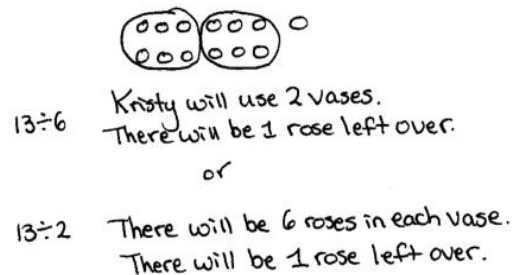 13÷6 Kristy will use 2 vases.
There will be 1 rose left over.
or
13÷2 There will be 6 roses in each vase.
There will be 1 rose left over.